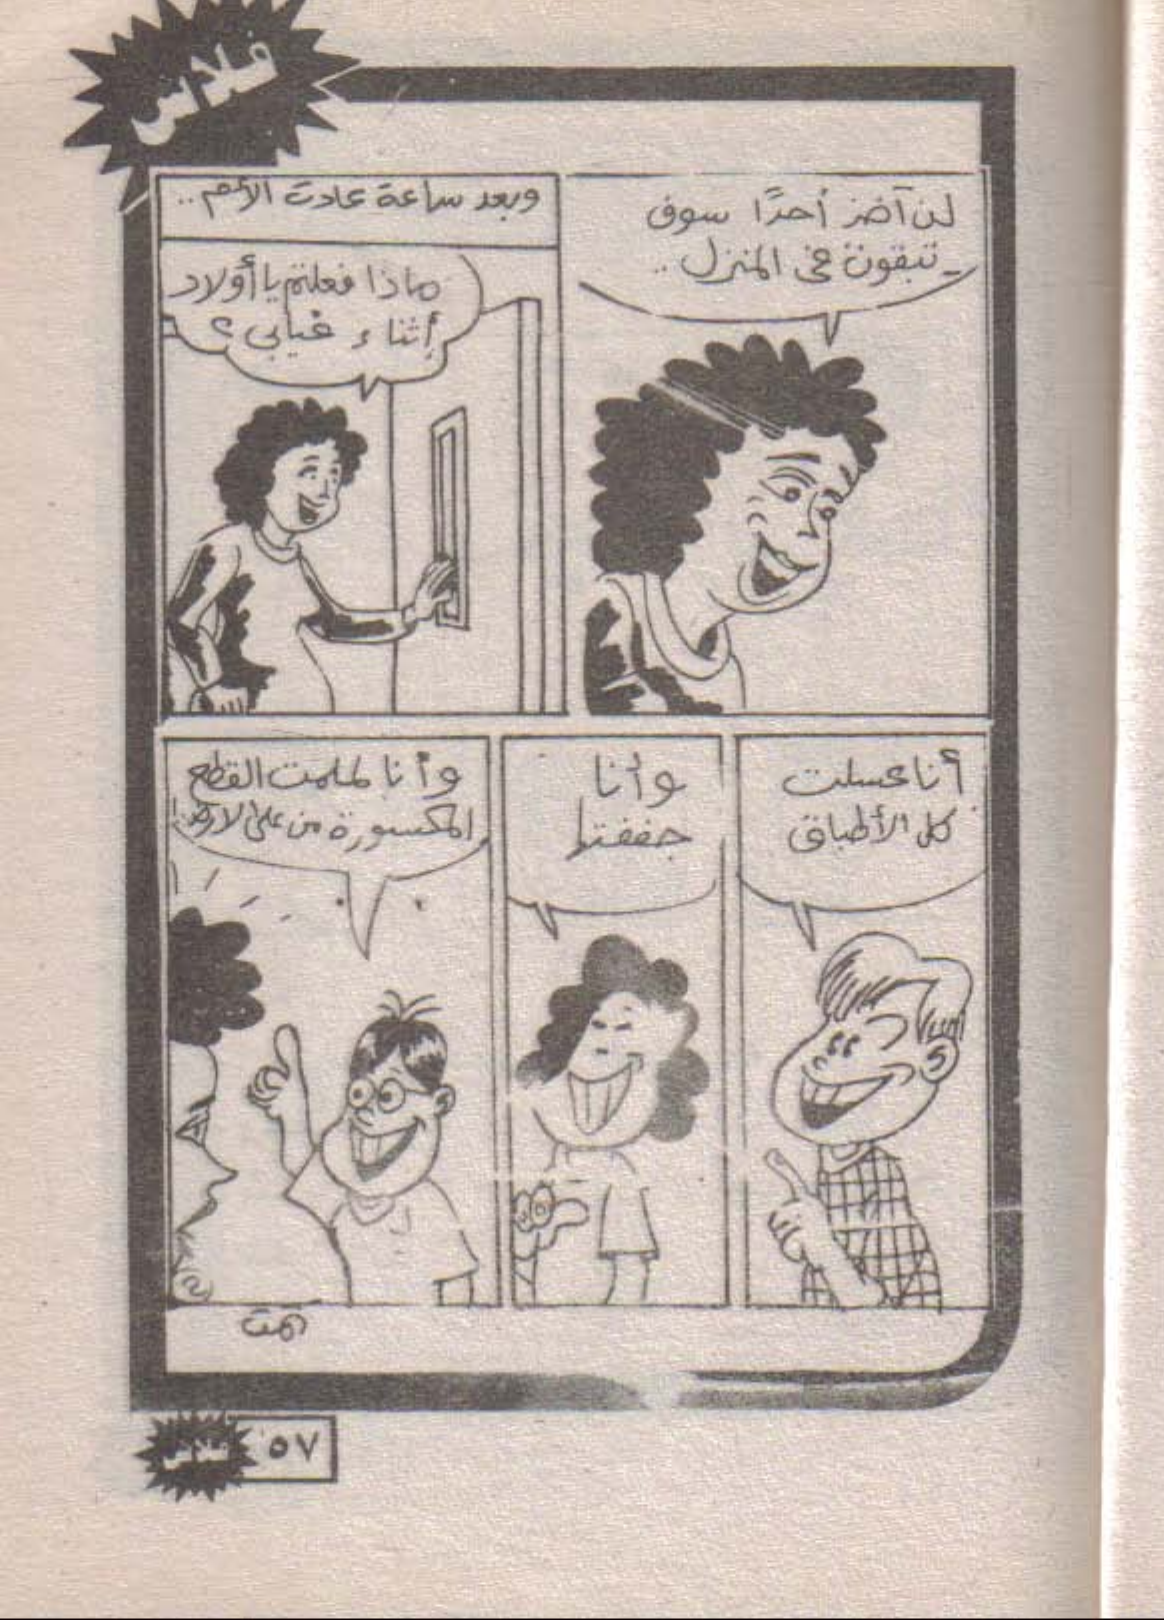 فلاش
لن آخذ أحدًا سوف
تبقون في المنزل ..
وبعد ساعة عادت الأم ..
ماذا فعلتم يا أولاد
أثناء غيابي ؟
أنا غسلت
كل الأطباق
وأنا
جففتها
وأنا لملمت القطع
المكسورة من على الأرض!
تمت
٥٧
فلاش